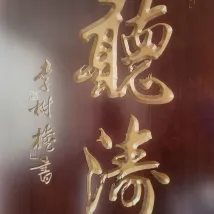 聽濤
李樹椿書